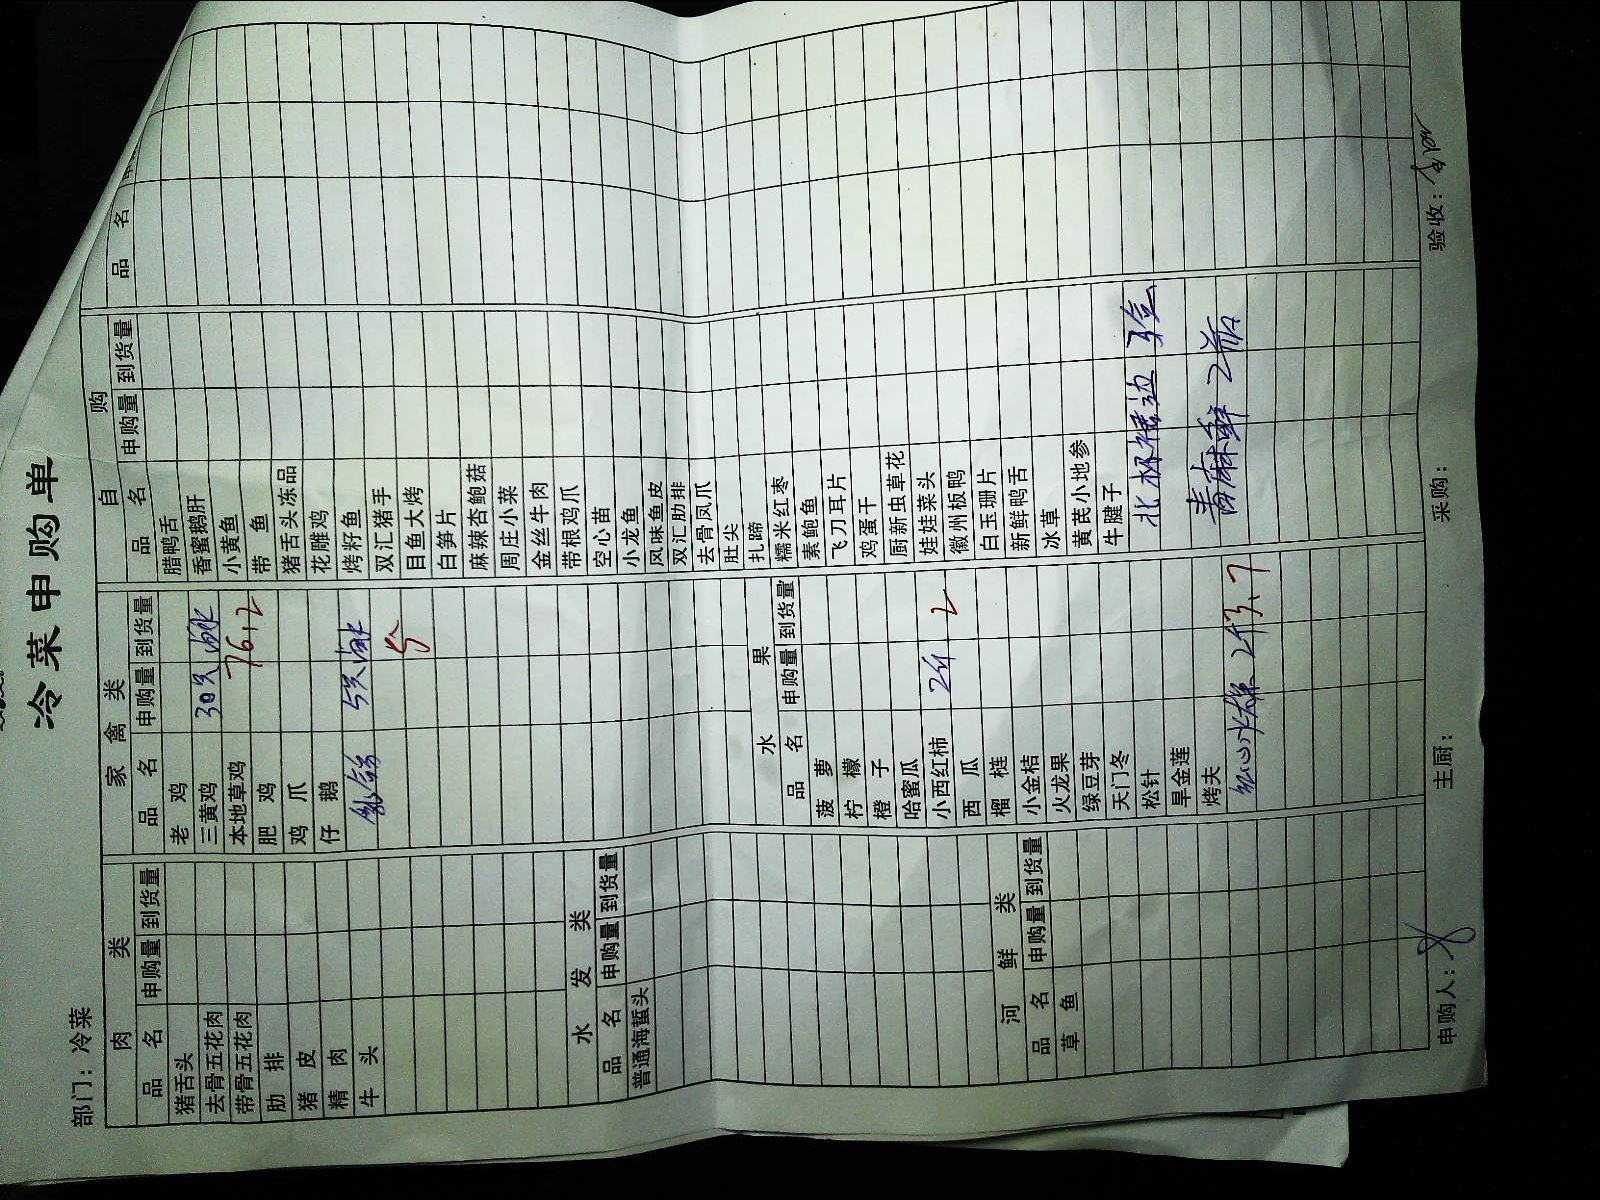 冷菜申购单
部门：冷菜
肉 类
品 名 申购量 到货量
猪舌头
去骨五花肉
带骨五花肉
肋 排
猪 皮
精 肉
牛 头
水 发 类
品 名 申购量 到货量
普通海蜇头
河 鲜 类
品 名 申购量 到货量
草 鱼
家 禽 类
品 名 申购量 到货量
老 鸡
三黄鸡 30只
本地草鸡 76.2
肥 鸡
鸡 爪
仔 鹅
5只
水 果
品 名 申购量 到货量
菠 萝
柠 檬
橙 子
哈蜜瓜
小西红柿 2斤 2
西 瓜
榴 梿
小金桔
火龙果
绿豆芽
天门冬
松针
旱金莲
烤夫
自 购
品 名 申购量 到货量
腊鸭舌
香蜜鹅肝
小黄鱼
带 鱼
猪舌头冻品
花雕鸡
烤籽鱼
双汇猪手
目鱼大烤
白笋片
麻辣杏鲍菇
周庄小菜
金丝牛肉
带根鸡爪
空心苗
小龙鱼
风味鱼皮
双汇肋排
去骨凤爪
肚尖
扎蹄
糯米红枣
素鲍鱼
飞刀耳片
鸡蛋干
厨新虫草花
娃娃菜头
徽州板鸭
白玉珊片
新鲜鸭舌
冰草
黄芪小地参
牛腱子
品 名
申购人：
主厨：
采购：
验收：